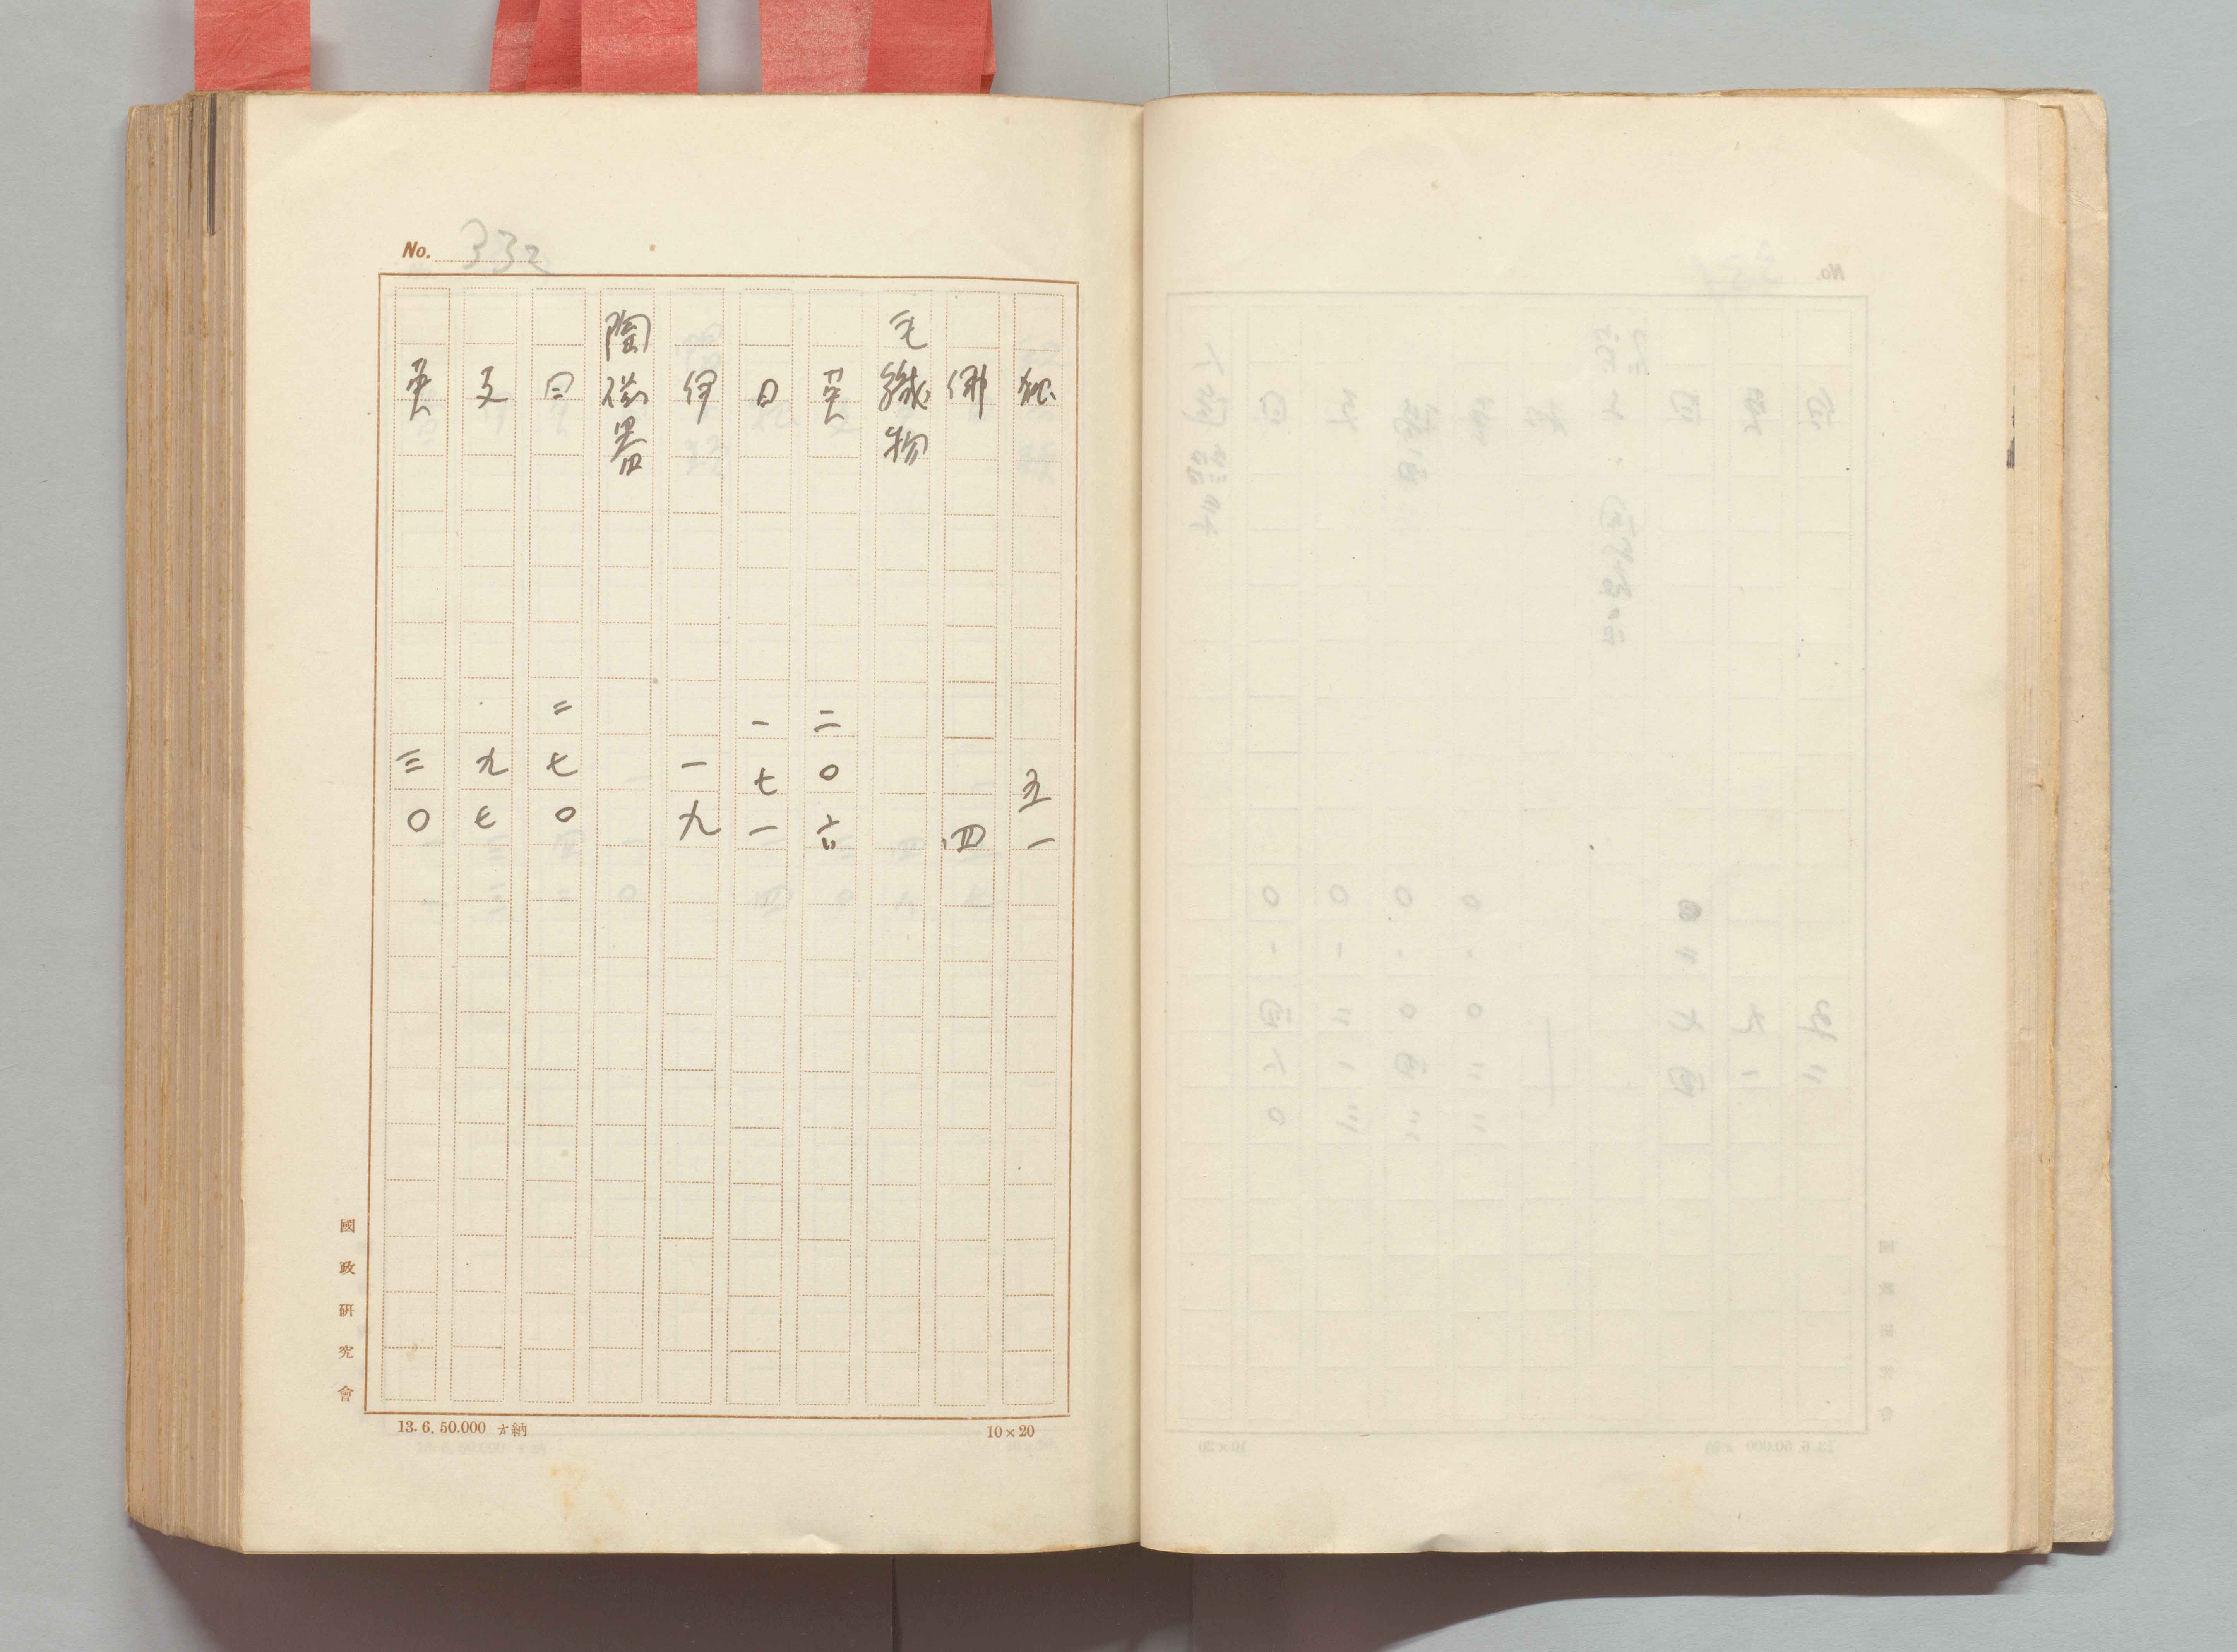 No. 332
五一
佛 四
毛織物
英 二〇六
日 一七一
伊 一九
陶磁器
日 二七〇
支 九七
英 三〇
國政研究會
13.6.50.000 納
10×20